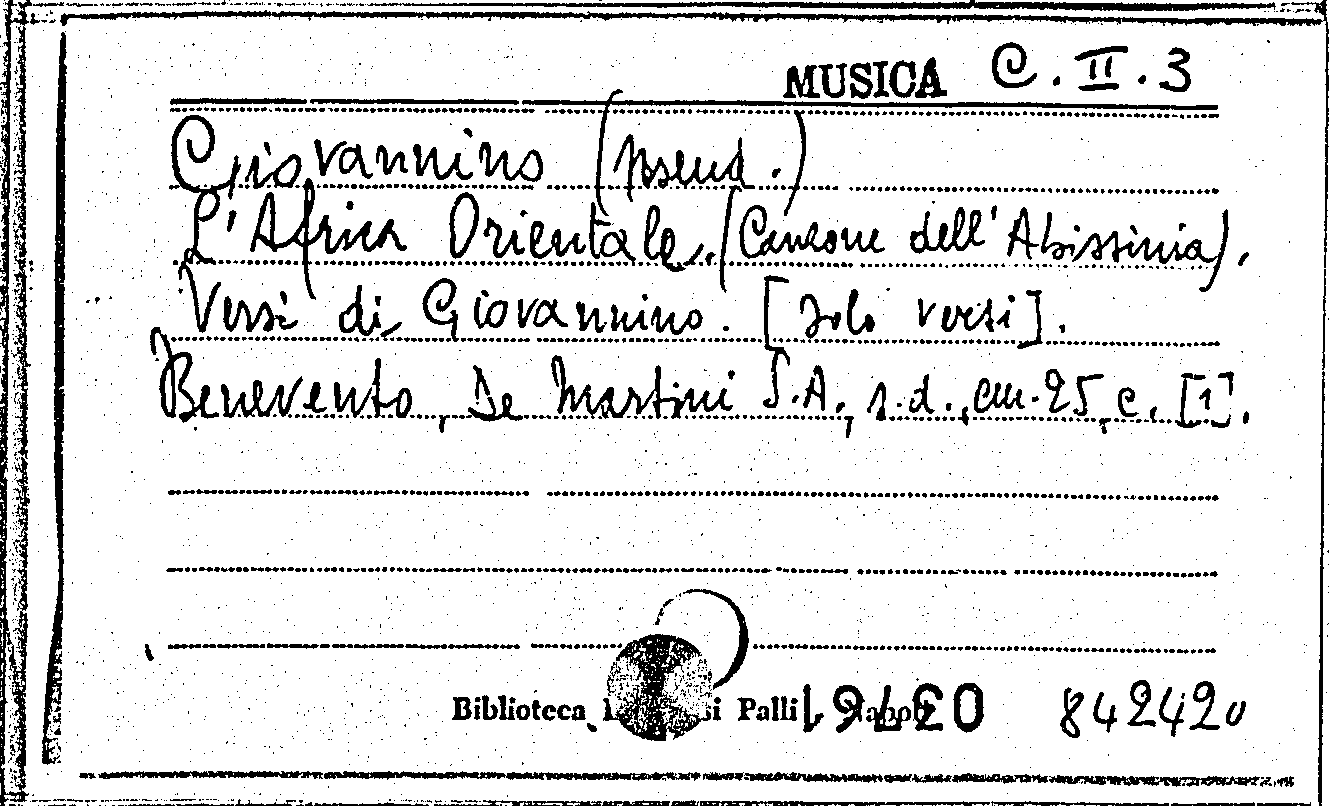 MUSICA C.II.3
Giovannino (pseud.)
L'Africa Orientale. (Canzone dell'Abissinia).
Versi di Giovannino. [Solo versi].
Benevento, De Martini S.A., s.d., cm. 25, c. [1].
Biblioteca Palli 842420